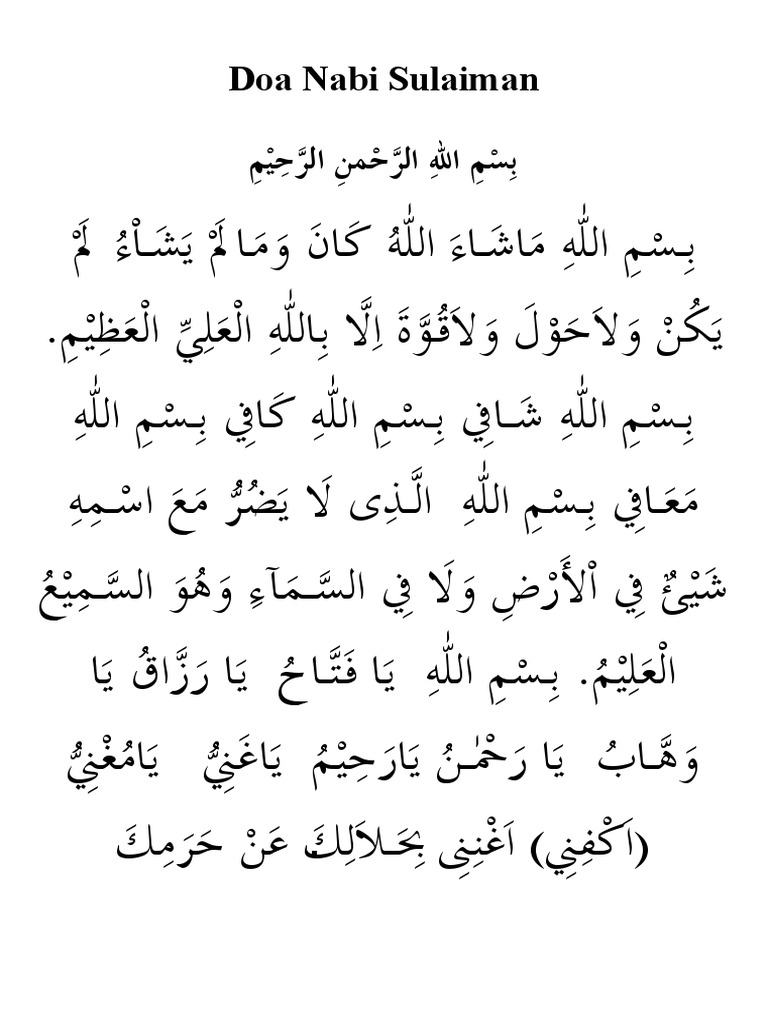 Doa Nabi Sulaiman
بِسْمِ اللهِ الرَّحْمنِ الرَّحِيْمِ
بِـسْـمِ اللّٰهِ مَاشَـاءَ اللّٰهُ كَـانَ وَمَـا لَمْ يَشَـاْءُ لَمْ
يَكُنْ وَلاَحَوْلَ وَلاَقُـوَّةَ اِلَّا بِـاللّٰهِ الْعَلِـيِّ الْعَظِيْمِ.
بِـسْـمِ اللّٰهِ شَــافِي بِـسْـمِ اللّٰهِ كَـافِي بِـسْـمِ اللّٰهِ
مَعَـافِي بِـسْـمِ اللّٰهِ الَّـذِى لَا يَضُرُّ مَعَ اسْـمِـهِ
شَيْـئٌ فِي اْلأَرْضِ وَلَا فِي السَّـمَـآءِ وَهُوَ السَّـمِيْعُ
الْعَلِيْمُ. بِـسْـمِ اللّٰهِ يَا فَتَّـاحُ يَا رَزَّاقُ يَا
وَهَّـابُ يَا رَحْمٰـنُ يَارَحِيْـمُ يَاغَنِيُّ يَامُغْنِيُّ
(اَكْفِنِي) اَغْنِنِى بِحَـلاَلِكَ عَنْ حَرَمِـكَ